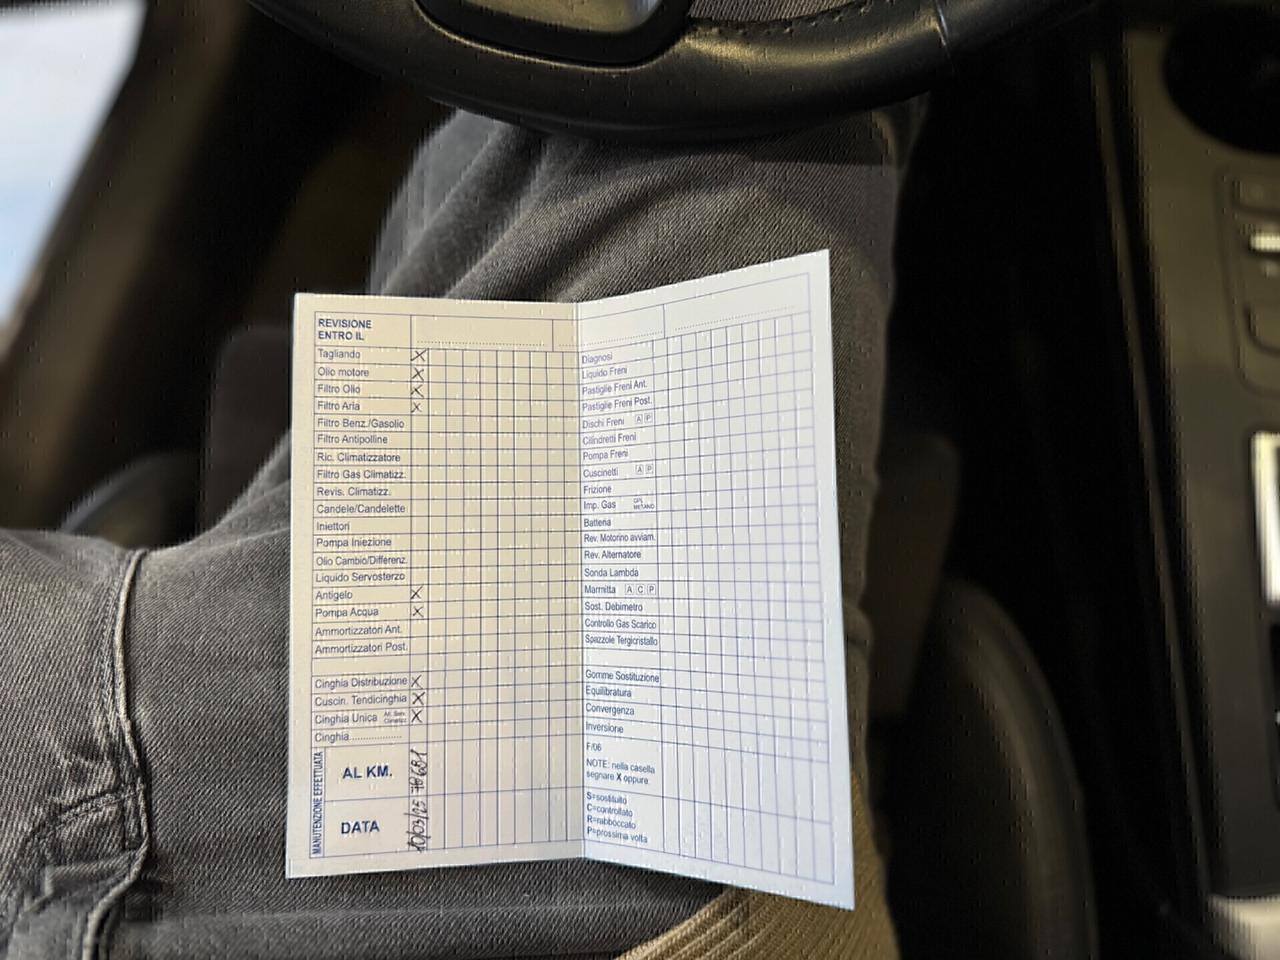 REVISIONE
ENTRO IL
Tagliando X
Olio motore X
Filtro Olio X
Filtro Aria X
Filtro Benz./Gasolio
Filtro Antipolline
Ric. Climatizzatore
Filtro Gas Climatizz.
Revis. Climatizz.
Candele/Candelette
Iniettori
Pompa Iniezione
Olio Cambio/Differenz.
Liquido Servosterzo
Antigelo X
Pompa Acqua X
Ammortizzatori Ant.
Ammortizzatori Post.
Cinghia Distribuzione X
Cuscin. Tendicinghia X
Cinghia Unica X
Cinghia
MANUTENZIONE EFFETTUATA
AL KM.
DATA 10/03/25
Diagnosi
Liquido Freni
Pastiglie Freni Ant.
Pastiglie Freni Post.
Dischi Freni A P
Cilindretti Freni
Pompa Freni
Cuscinetti A P
Frizione
Imp. Gas GPL METANO
Batteria
Rev. Motorino avviam.
Rev. Alternatore
Sonda Lambda
Marmitta A C P
Sost. Debimetro
Controllo Gas Scarico
Spazzole Tergicristallo
Gomme Sostituzione
Equilibratura
Convergenza
Inversione
F/06
NOTE: nella casella
segnare X oppure
S=sostituito
C=controllato
R=rabboccato
P=prossima volta